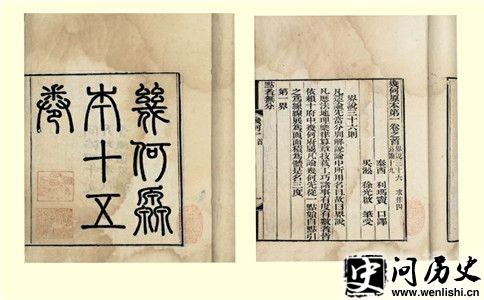 幾何原
本十五
卷
幾何原本第一卷之首 界說三十六 求作四
公論十九
泰西 利瑪竇 口譯
吳淞 徐光啟 筆受
界說三十六則
凡造論先當分別解說論中所用名目故曰界說
凡歷法地理樂律算章技藝工巧諸事有度有數者皆
依賴十府中幾何府屬凡論幾何先從一點始自點引
之爲線線展爲面面積爲體是名三度
第一界
點者無分
史问历史
www.wenlishi.cn